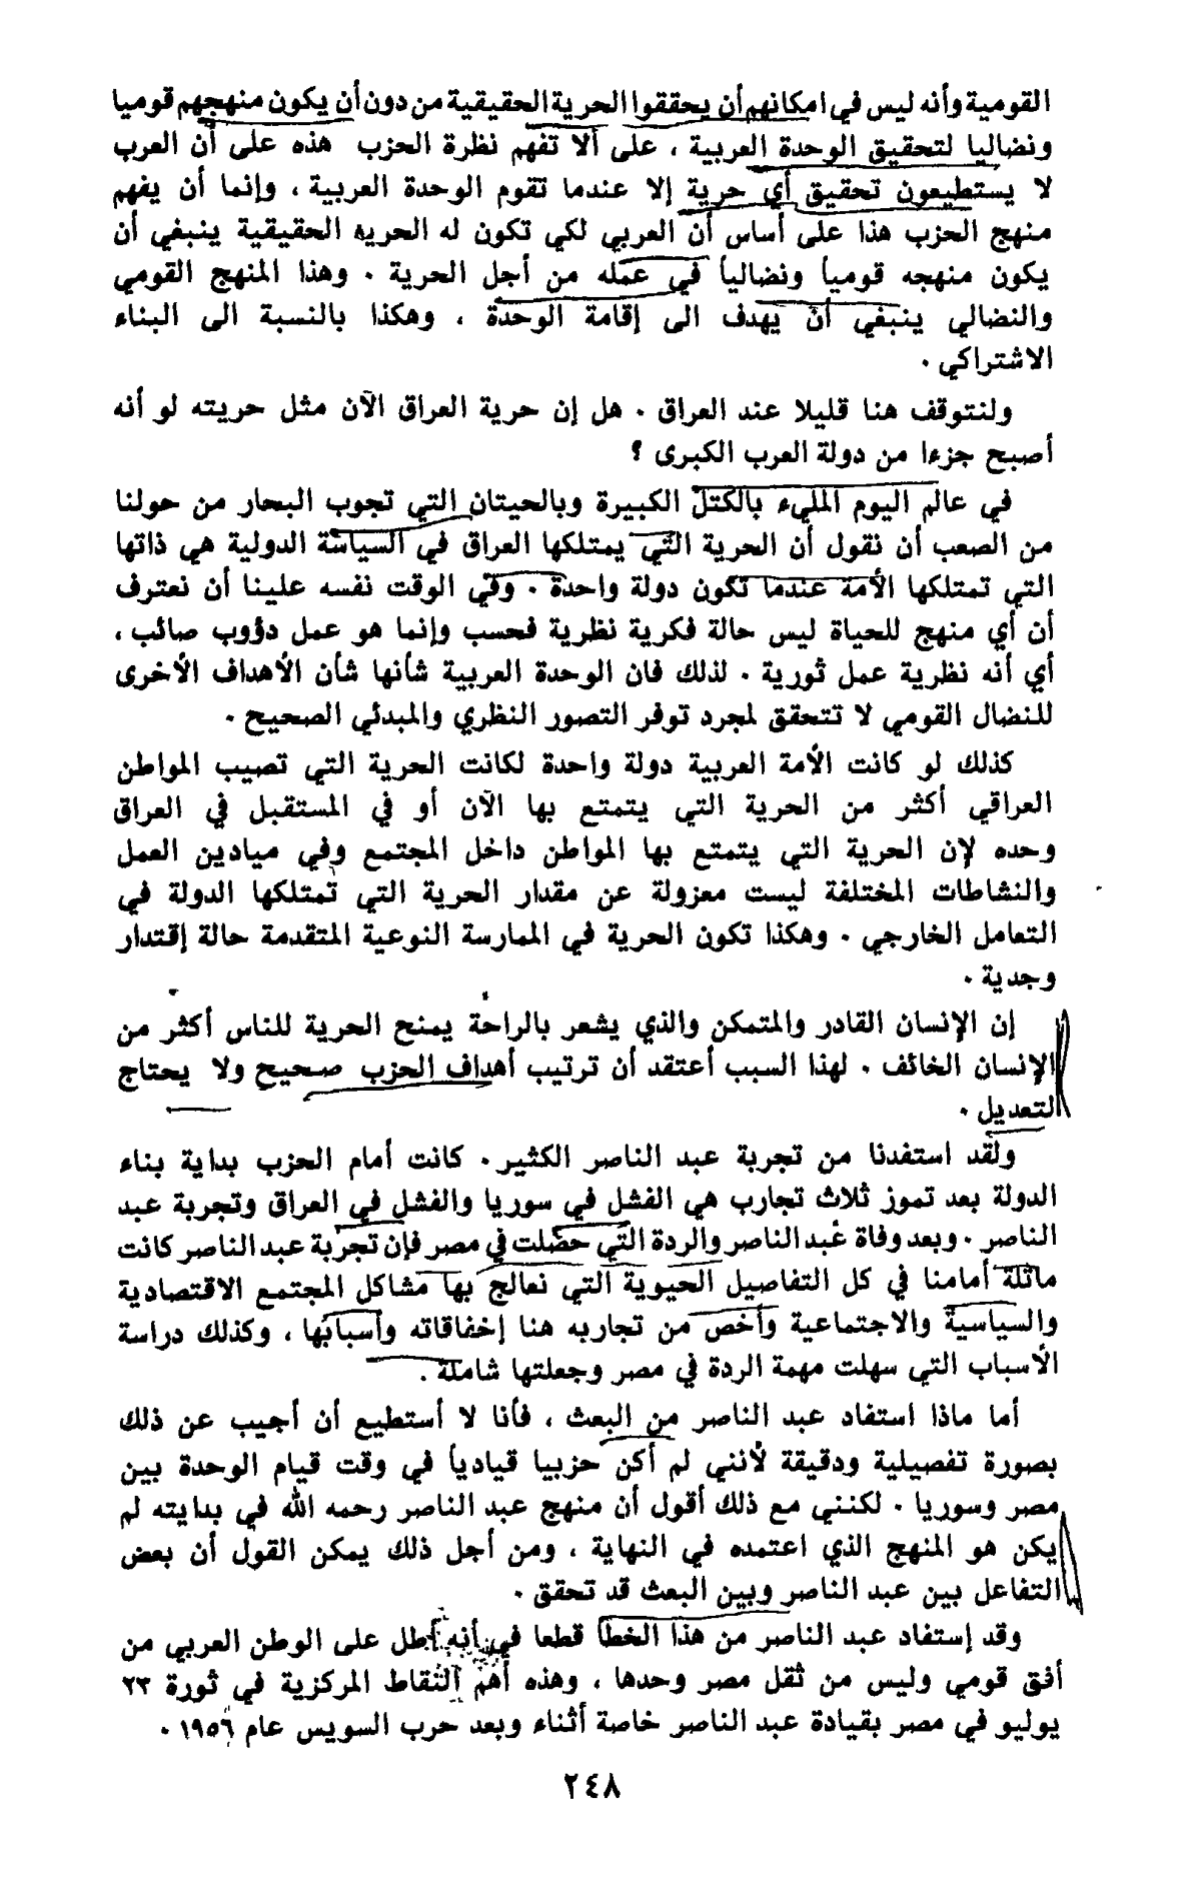 القومية وأنه ليس في امكانهم أن يحققوا الحرية الحقيقية من دون أن يكون منهجهم قوميا
ونضاليا لتحقيق الوحدة العربية ، على ألا تفهم نظرة الحزب هذه على أن العرب
لا يستطيعون تحقيق أي حرية إلا عندما تقوم الوحدة العربية ، وإنما أن يفهم
منهج الحزب هذا على أساس أن العربي لكي تكون له الحرية الحقيقية ينبغي أن
يكون منهجه قومياً ونضالياً في عمله من أجل الحرية . وهذا المنهج القومي
والنضالي ينبغي أن يهدف الى إقامة الوحدة ، وهكذا بالنسبة الى البناء
الاشتراكي .
ولنتوقف هنا قليلا عند العراق . هل إن حرية العراق الآن مثل حريته لو أنه
أصبح جزءا من دولة العرب الكبرى ؟
في عالم اليوم المليء بالكتل الكبيرة وبالحيتان التي تجوب البحار من حولنا
من الصعب أن نقول أن الحرية التي يمتلكها العراق في السياسة الدولية هي ذاتها
التي تمتلكها الأمة عندما تكون دولة واحدة . وفي الوقت نفسه علينا أن نعترف
أن أي منهج للحياة ليس حالة فكرية نظرية فحسب وإنما هو عمل دؤوب صائب ،
أي أنه نظرية عمل ثورية . لذلك فان الوحدة العربية شأنها شأن الأهداف الأخرى
للنضال القومي لا تتحقق لمجرد توفر التصور النظري والمبدئي الصحيح .
كذلك لو كانت الأمة العربية دولة واحدة لكانت الحرية التي تصيب المواطن
العراقي أكثر من الحرية التي يتمتع بها الآن أو في المستقبل في العراق
وحده لإن الحرية التي يتمتع بها المواطن داخل المجتمع وفي ميادين العمل
والنشاطات المختلفة ليست معزولة عن مقدار الحرية التي تمتلكها الدولة في
التعامل الخارجي . وهكذا تكون الحرية في الممارسة النوعية المتقدمة حالة إقتدار
وجدية .
إن الإنسان القادر والمتمكن والذي يشعر بالراحة يمنح الحرية للناس أكثر من
الإنسان الخائف . لهذا السبب أعتقد أن ترتيب أهداف الحزب صحيح ولا يحتاج
لتعديل .
ولقد استفدنا من تجربة عبد الناصر الكثير . كانت أمام الحزب بداية بناء
الدولة بعد تموز ثلاث تجارب هي الفشل في سوريا والفشل في العراق وتجربة عبد
الناصر . وبعد وفاة عبد الناصر والردة التي حصلت في مصر فإن تجربة عبد الناصر كانت
ماثلة أمامنا في كل التفاصيل الحيوية التي نعالج بها مشاكل المجتمع الاقتصادية
والسياسية والاجتماعية وأخص من تجاربه هنا إخفاقاته وأسبابها ، وكذلك دراسة
الأسباب التي سهلت مهمة الردة في مصر وجعلتها شاملة .
أما ماذا استفاد عبد الناصر من البعث ، فأنا لا أستطيع أن أجيب عن ذلك
بصورة تفصيلية ودقيقة لأنني لم أكن حزبيا قيادياً في وقت قيام الوحدة بين
مصر وسوريا . لكنني مع ذلك أقول أن منهج عبد الناصر رحمه الله في بدايته لم
يكن هو المنهج الذي اعتمده في النهاية ، ومن أجل ذلك يمكن القول أن بعض
التفاعل بين عبد الناصر وبين البعث قد تحقق .
وقد إستفاد عبد الناصر من هذا الخطأ قطعا في أنه أطل على الوطن العربي من
أفق قومي وليس من ثقل مصر وحدها ، وهذه أهم النقاط المركزية في ثورة ٢٣
يوليو في مصر بقيادة عبد الناصر خاصة أثناء وبعد حرب السويس عام ١٩٥٦ .
٢٤٨